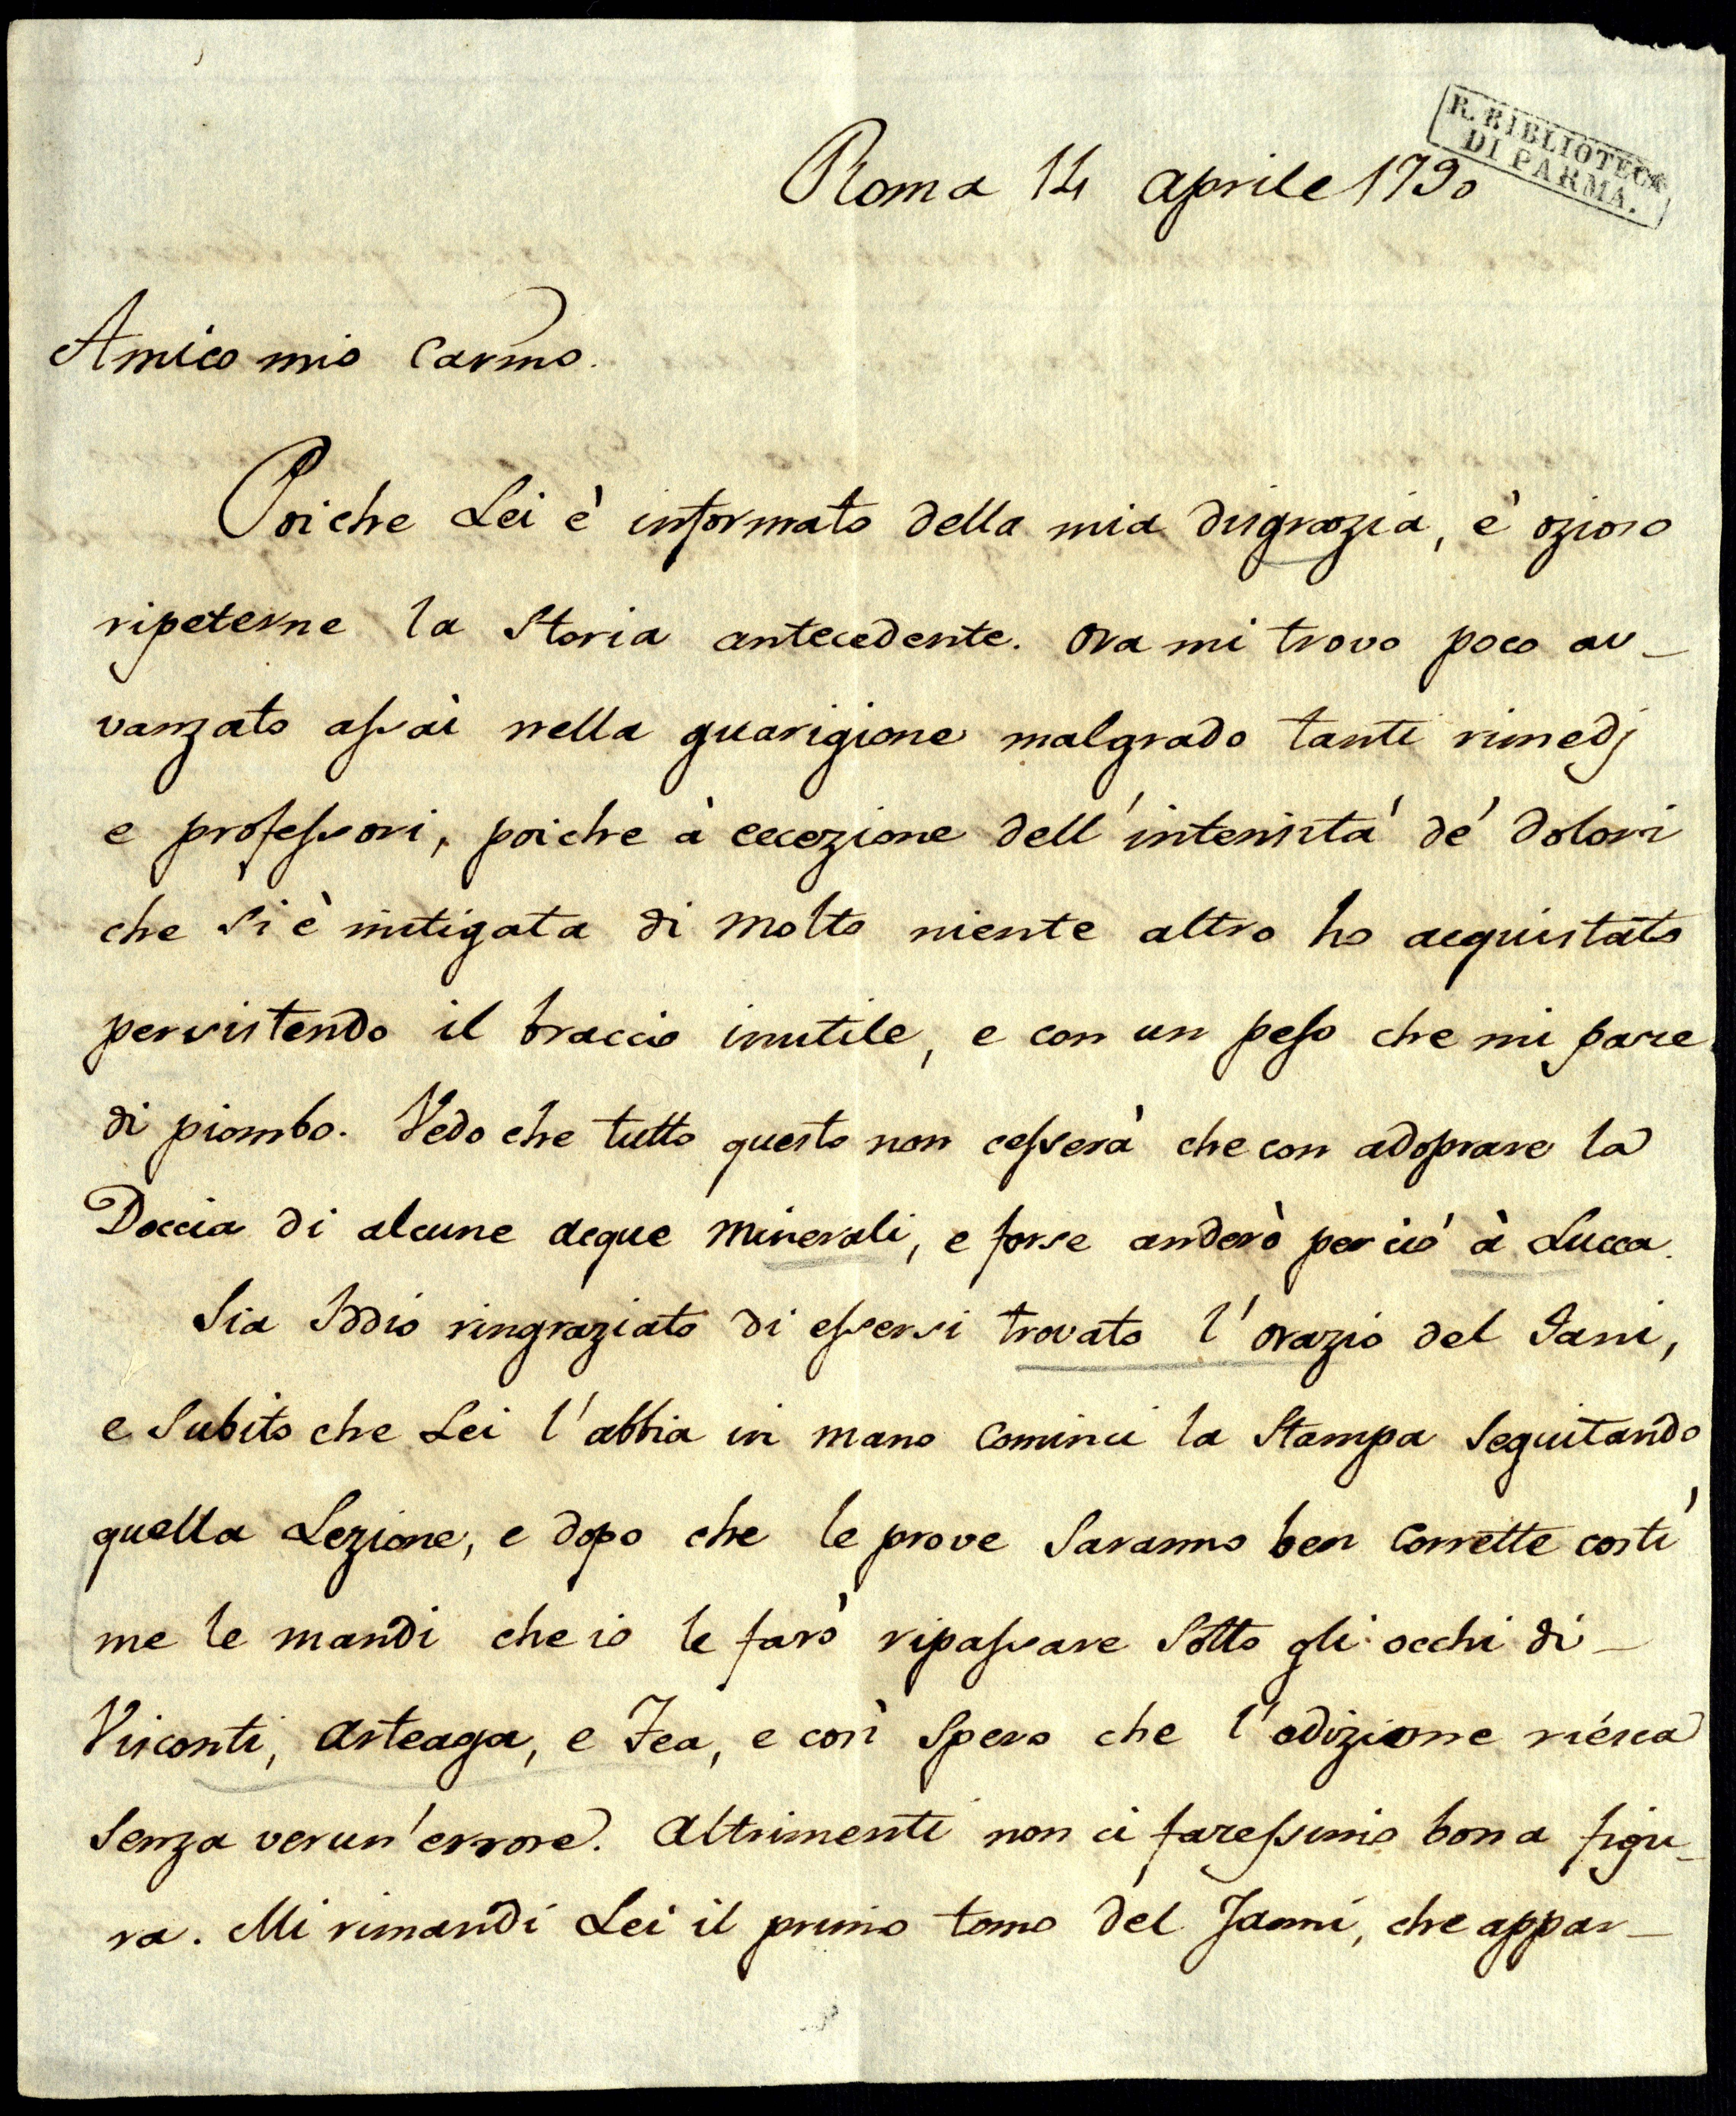 R. BIBLIOTECA
DI PARMA.
Roma 14 aprile 1790
Amico mio Carmo.
Poiche Lei è informato della mia disgrazia, è ozioso
ripeterne la storia antecedente. Ora mi trovo poco av-
vanzato assai nella guarigione malgrado tanti rimedj
e professori, poiche à eccezione dell'intensità de' dolori
che si è mitigata di molto niente altro ho acquistato
persistendo il braccio inutile, e con un peso che mi pare
di piombo. Vedo che tutto questo non cesserà che con adoprare la
Doccia di alcune acque minerali, e forse anderò perciò à Lucca.
Sia Iddio ringraziato di essersi trovato l'orazio del Jani,
e subito che Lei l'abbia in mano cominci la Stampa seguitando
quella Lezione, e dopo che le prove saranno ben corrette costì
me le mandi che io le farò ripassare sotto gli occhi di-
Visconti, Arteaga, e Fea, e così spero che l'edizione riesca
senza verun'errore. Altrimenti non ci faressimo bona figu-
ra. Mi rimandi Lei il primo tomo del Janni, che appar-